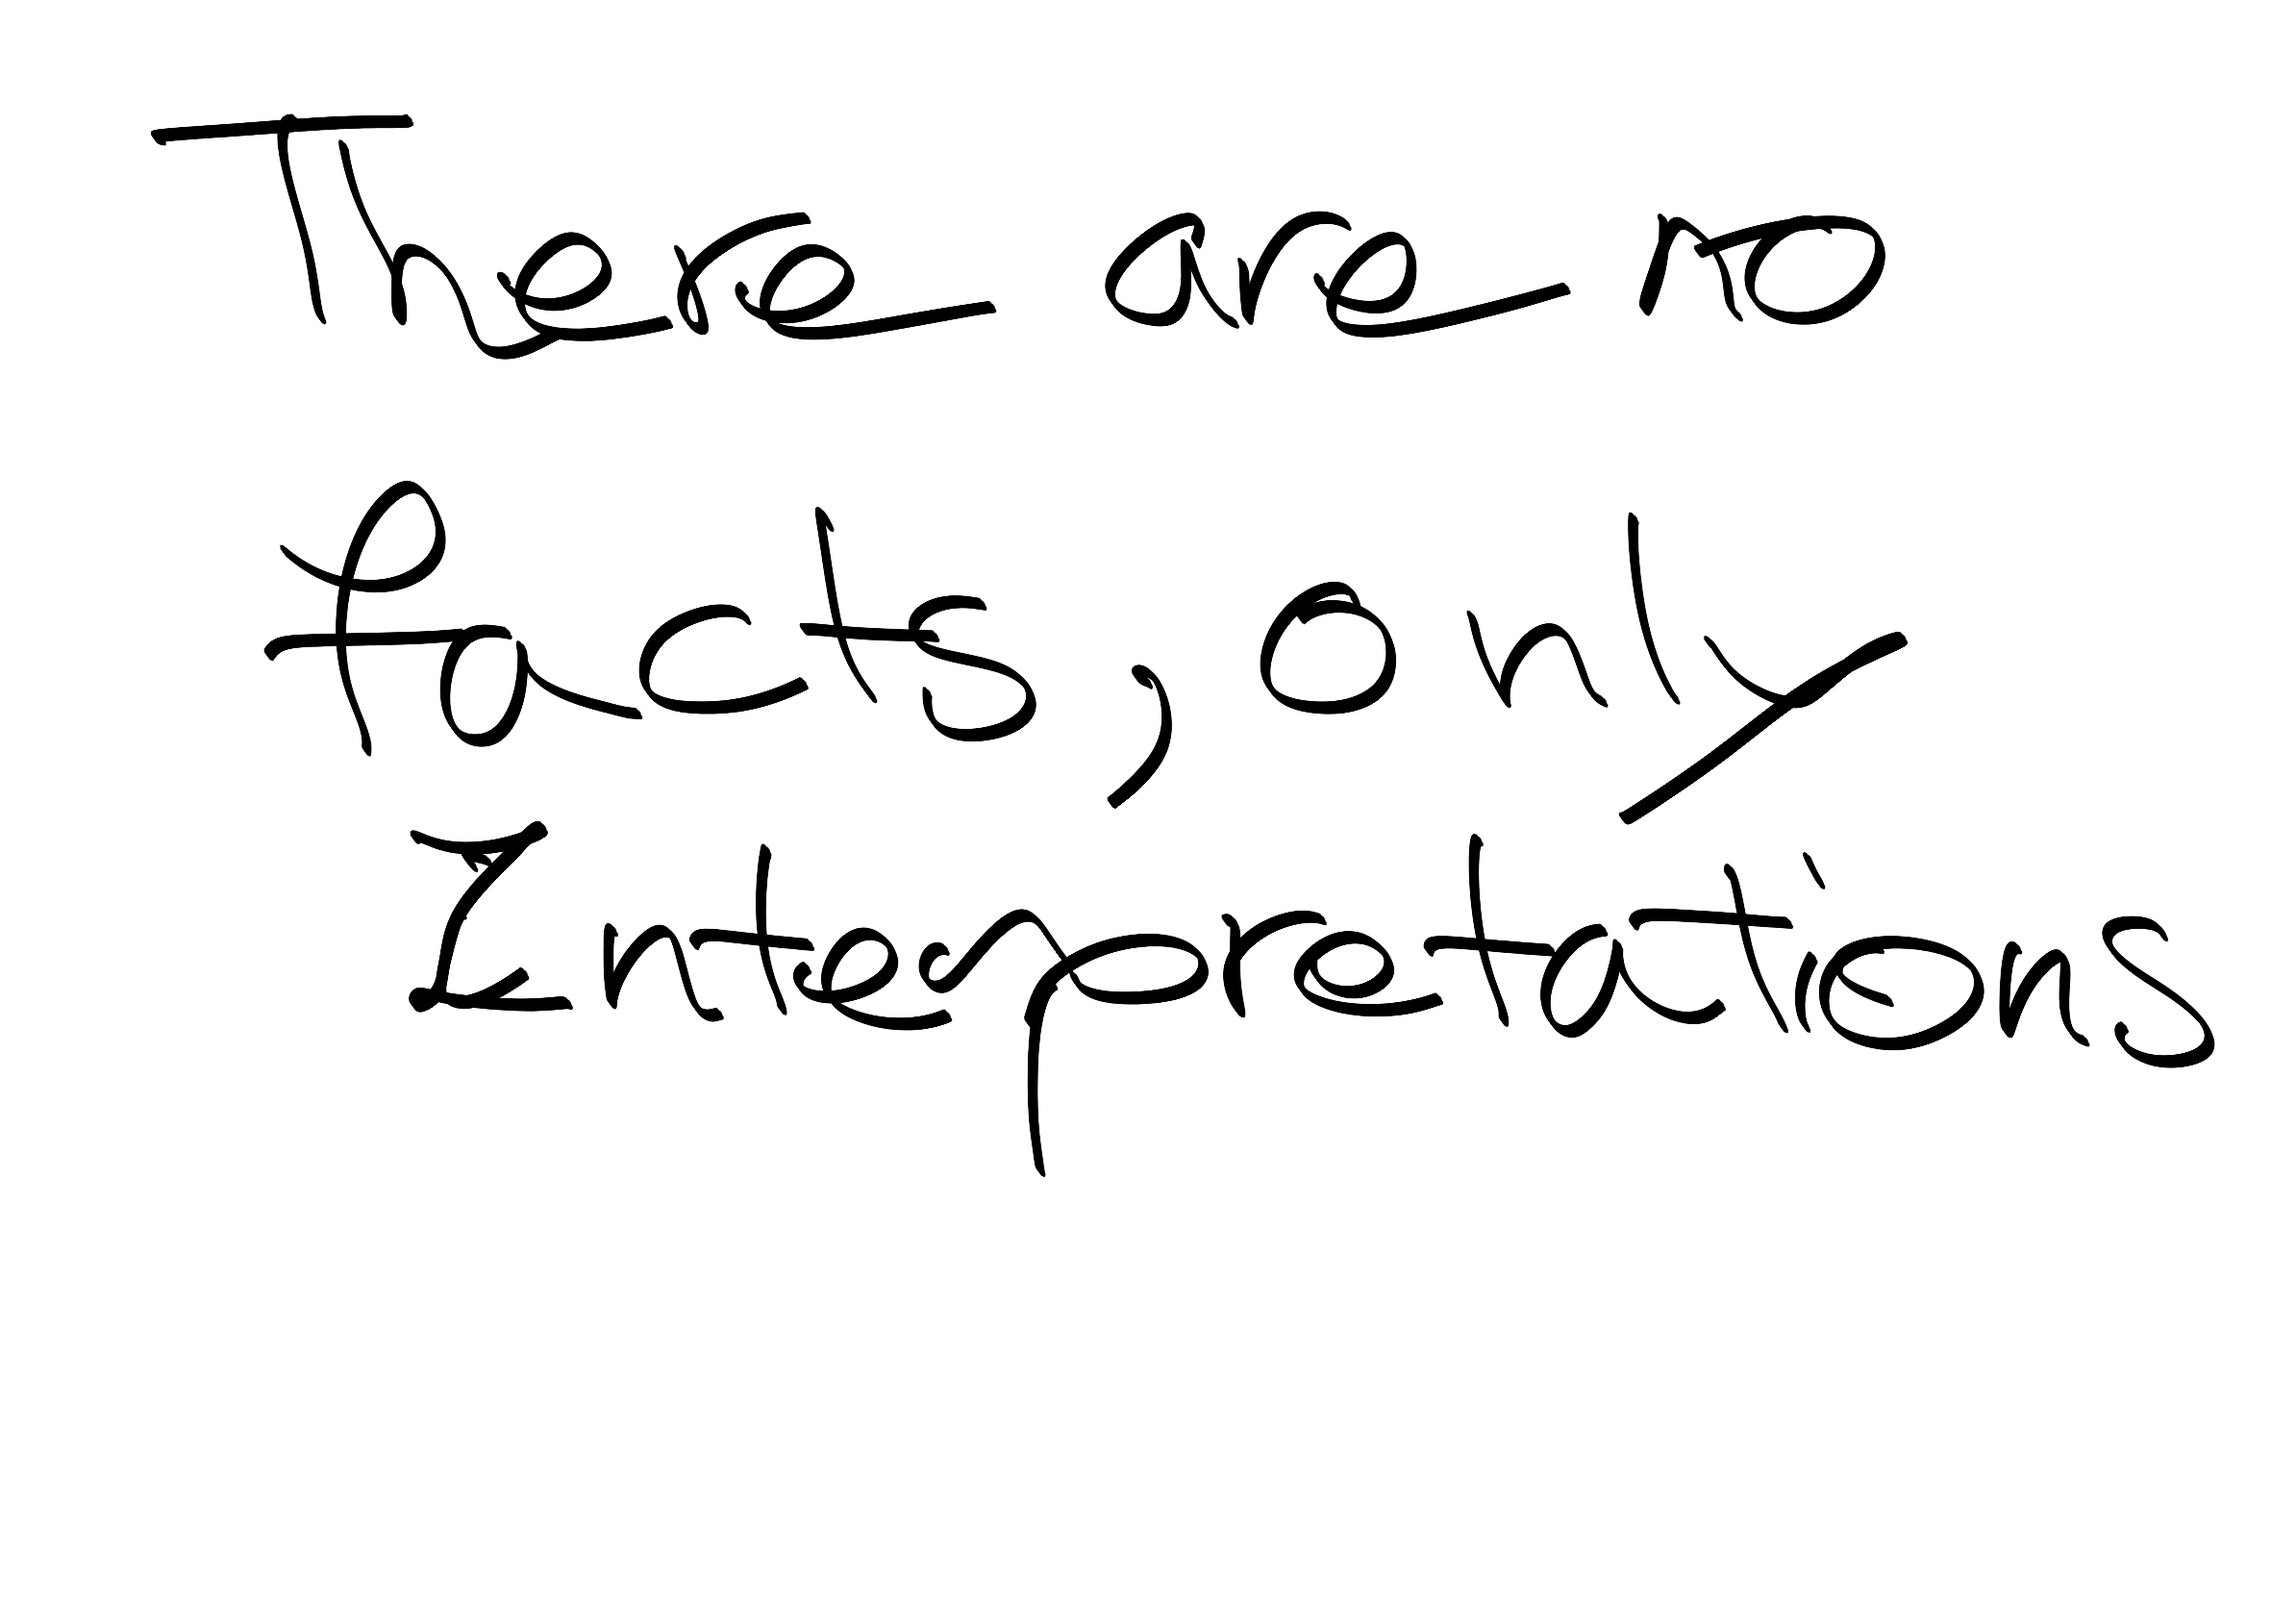 There are no
facts, only
Interpretations